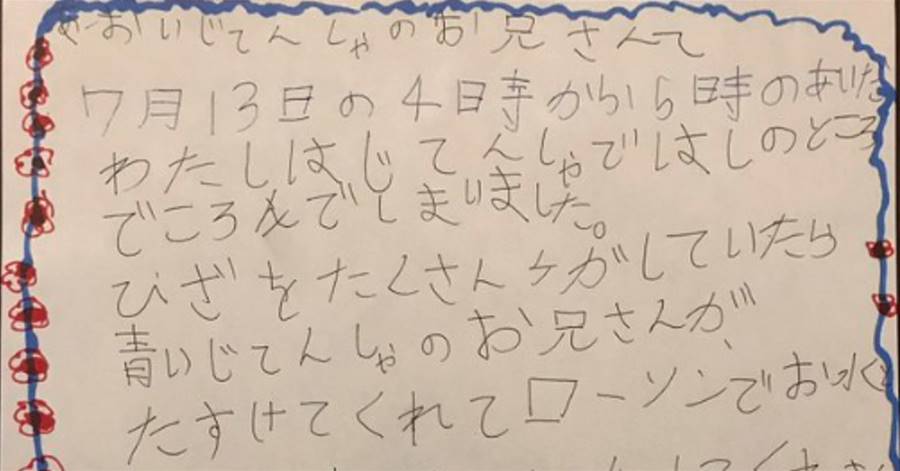 あおいじてんしゃのお兄さんて
7月13日の4時からら時のあいだ
わたしはじてんしゃではしのところ
でころんでしまいました。
ひざをたくさんケガしていたら
青いじてんしゃのお兄さんが、
たすけてくれてローソンでお水と